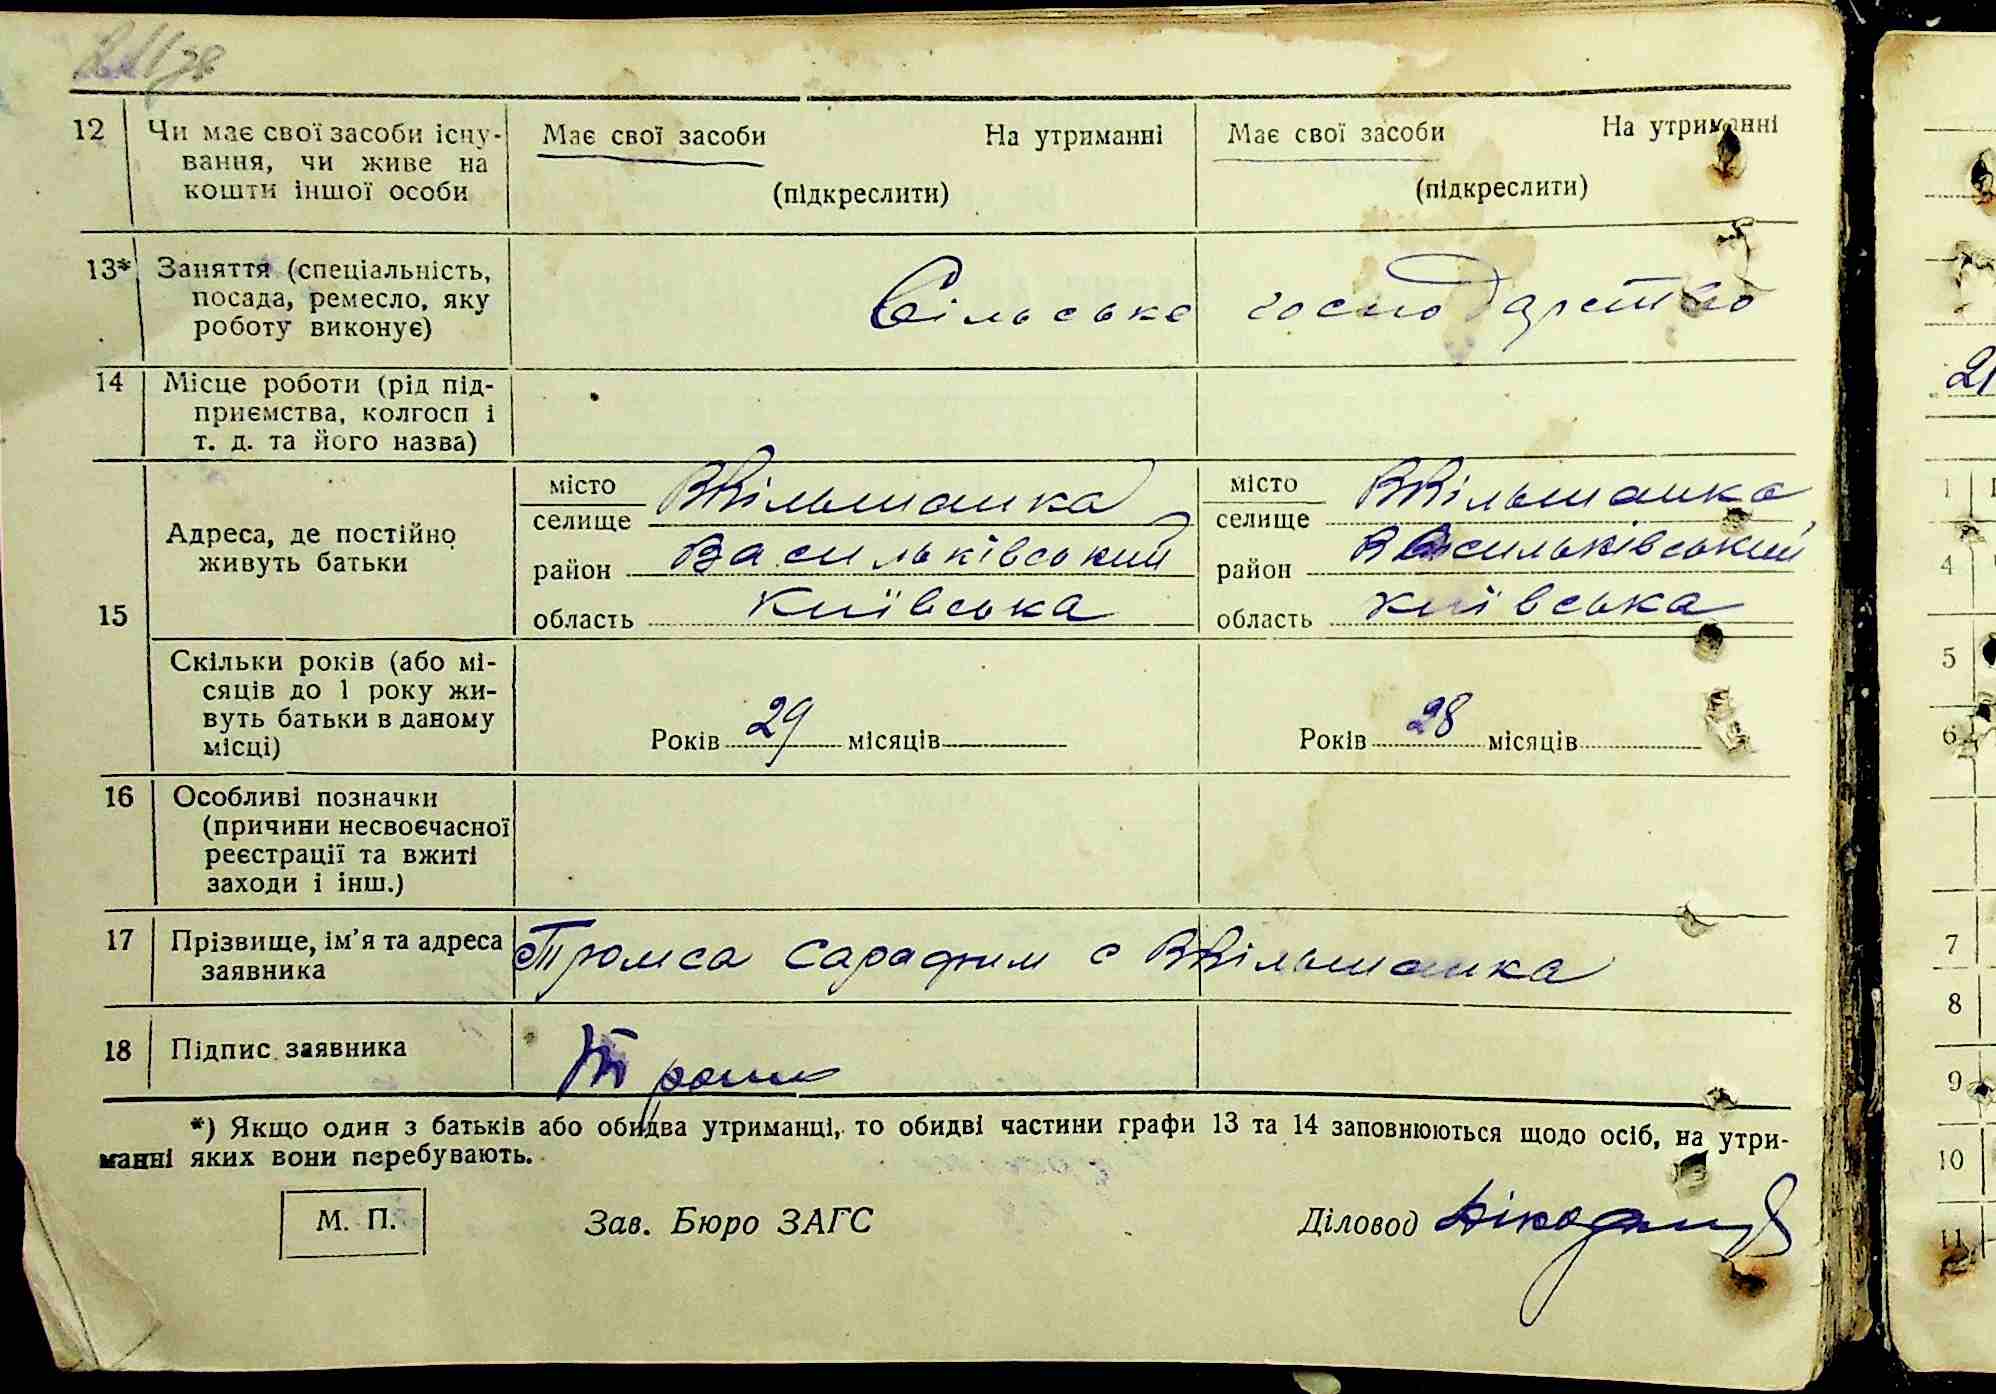 12 Чи має свої засоби існу-
вання, чи живе на
кошти іншої особи
Має свої засоби На утриманні
(підкреслити)
Має свої засоби На утриманні
(підкреслити)
13* Заняття (спеціальність,
посада, ремесло, яку
роботу виконує)
Сільське господарство
14 Місце роботи (рід під-
приємства, колгосп і
т. д. та його назва)
15
Адреса, де постійно
живуть батьки
місто
селище ВВільшанка
район Васильківський
область Київська
місто
селище ВВільшанка
район Васильківський
область Київська
Скільки років (або мі-
сяців до 1 року жи-
вуть батьки в даному
місці)
Років 29 місяців
Років 28 місяців
16 Особливі позначки
(причини несвоєчасної
реєстрації та вжиті
заходи і інш.)
17 Прізвище, ім'я та адреса
заявника
Сарафим с ВВільшанка
18 Підпис заявника
*) Якщо один з батьків або обидва утриманці, то обидві частини графи 13 та 14 заповнюються щодо осіб, на утри-
манні яких вони перебувають.
М. П.
Зав. Бюро ЗАГС
Діловод
1
4
5
6
7
8
9
10
11